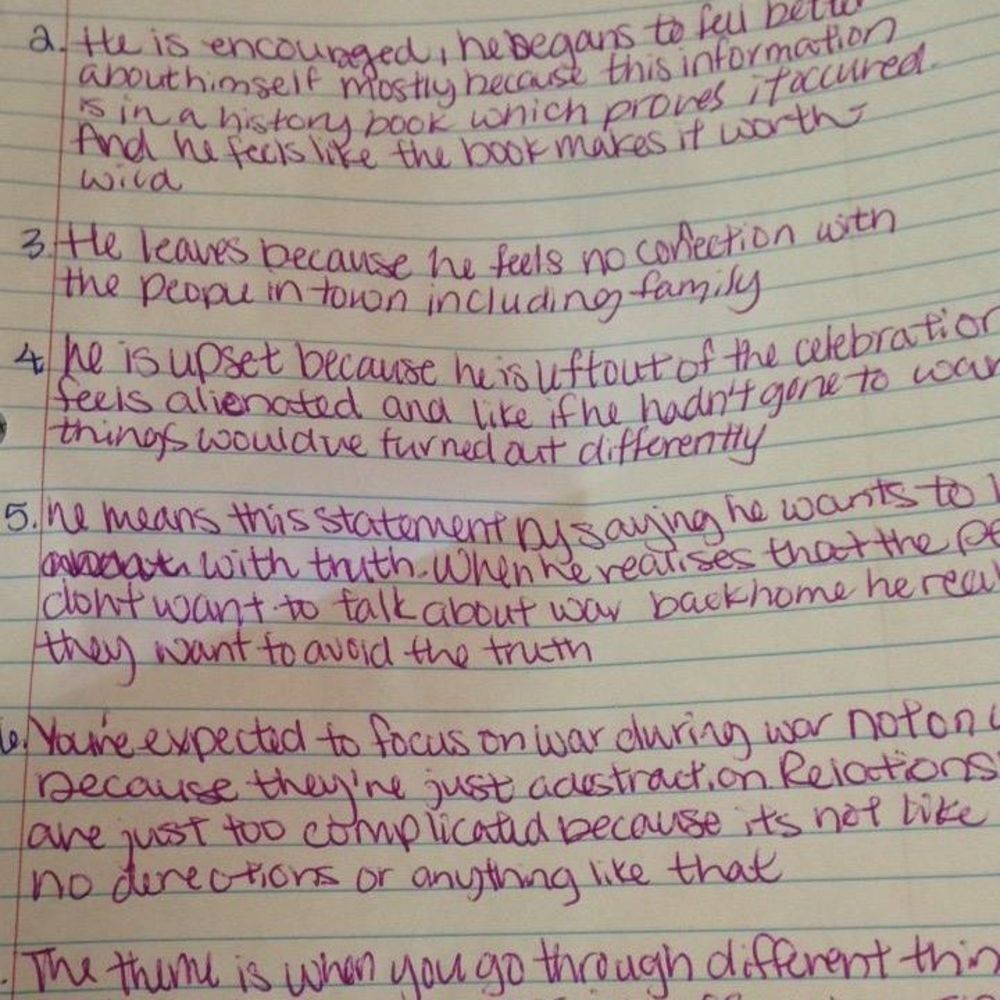 2. He is encouraged, he begans to fell bette
about himself mostly because this information
is in a history book which proves it accured.
And he feels like the book makes it worth-
wild
3. He leaves because he feels no connection with
the people in town including family
4. he is upset because he is left out of the celebration
feels alienated and like if he hadn't gone to war
things would've turned out differently
5. he means this statement by saying he wants to l
with truth. When he realises that the pe
dont want to talk about war back home he real
they want to avoid the truth
6. You're expected to focus on war during war not on
because they're just a destraction. Relations
are just too complicated because its not like
no derections or anything like that
. The theme is when you go through different thin